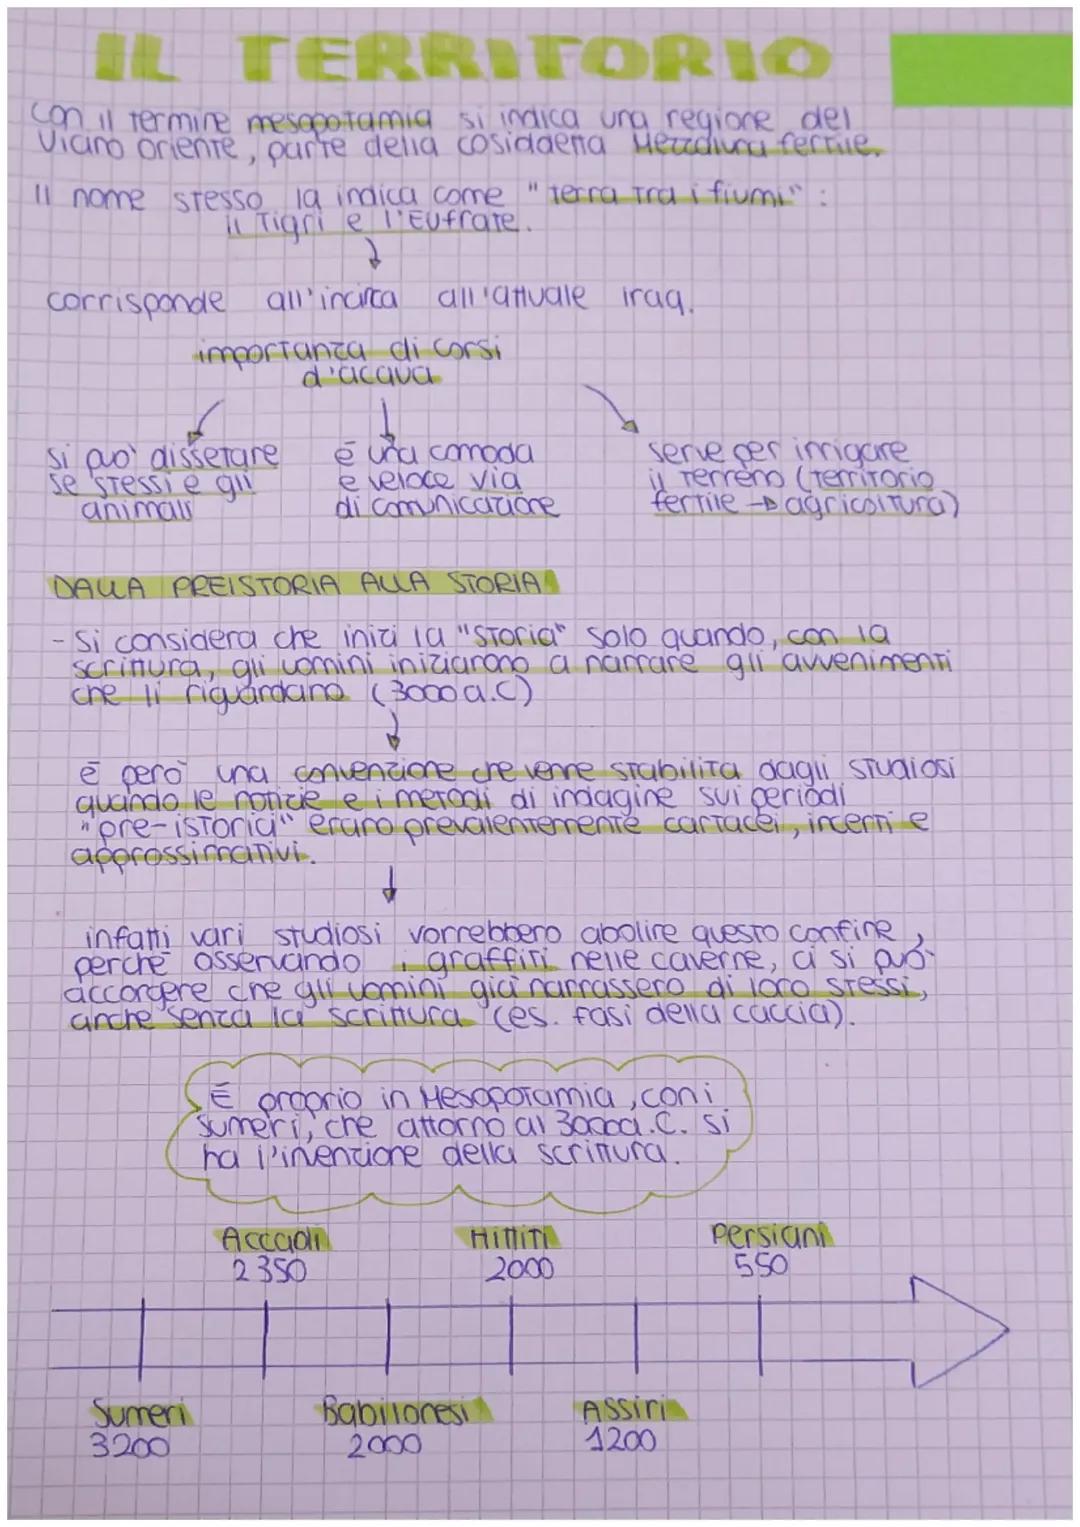 IL TERRITORIO
Con il termine mesopotamia si indica una regione del
Vicino oriente, parte della cosiddetta Mezzaluna fertile.
Il nome stesso la indica come "terra tra i fiumi":
il Tigri e l'Eufrate.
corrisponde all'incirca all'attuale iraq.
importanza di corsi
d'acqua
si può dissetare
se stessi e gli
animali
è una comoda
e veloce via
di comunicazione
serve per irrigare
il terreno (territorio
fertile → agricoltura)
DALLA PREISTORIA ALLA STORIA
- Si considera che inizi la "Storia" solo quando, con la
scrittura, gli uomini iniziarono a narrare gli avvenimenti
che li riguardano (3000 a.C)
è però una convenzione che venne stabilita dagli studiosi
quando le notizie e i metodi di indagine sui periodi
"pre-istorici" erano prevalentemente cartacei, incerti e
approssimativi.
infatti vari studiosi vorrebbero abolire questo confine,
perchè osservando i graffiti nelle caverne, ci si può
accorgere che gli uomini già narrassero di loro stessi,
anche senza la scrittura (es. fasi della caccia).
È proprio in Mesopotamia, con i
sumeri, che attorno al 3000a.C. si
ha l'invenzione della scrittura.
Accadi
2350
Hittiti
2000
Persiani
550
Sumeri
3200
Babilonesi
2000
Assiri
1200